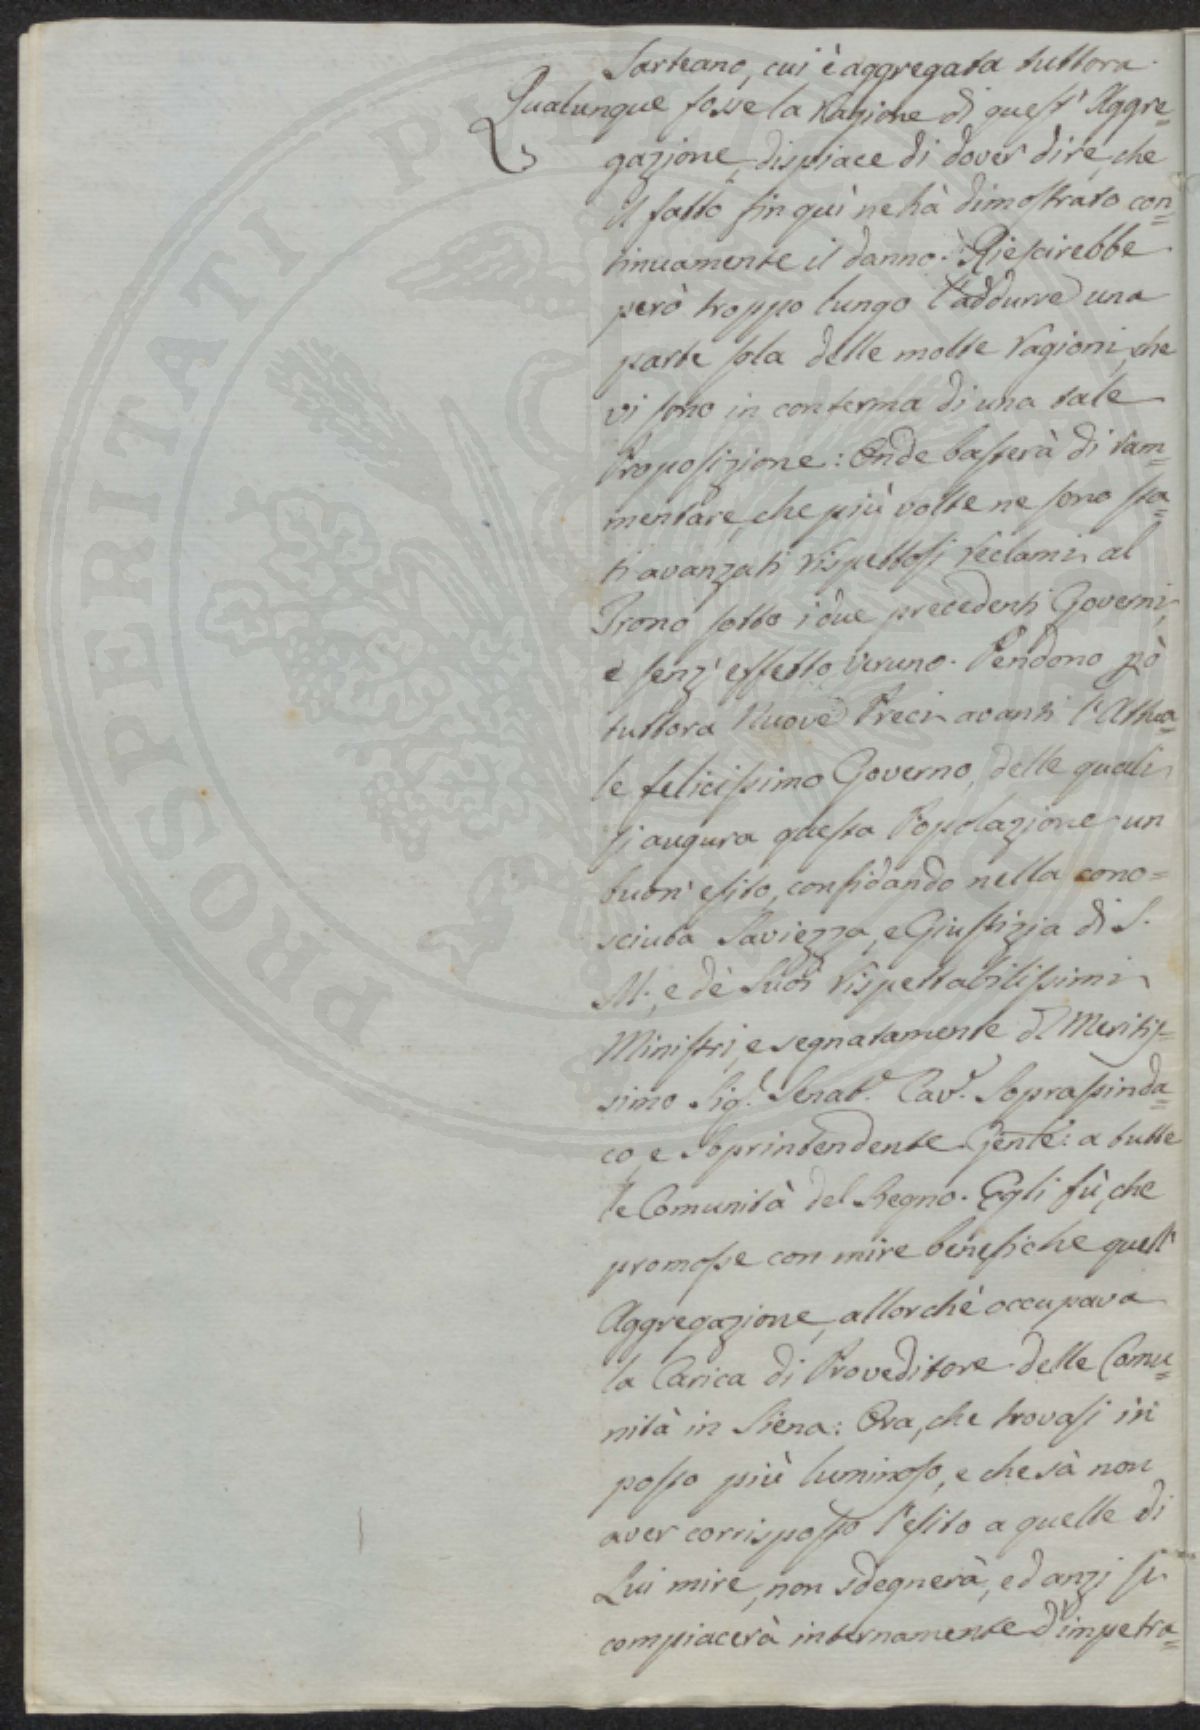 Sarteano, cui è aggregata tuttora.
Qualunque fosse la Ragione di quest' Aggre=
gazione, dispiace di dover dire, che
il fatto fin quì ne hà dimostrato con=
tinuamente il danno. Riescirebbe
però troppo lungo l'addurre una
parte sola delle molte ragioni, che
vi sono in conferma di una tale
Proposizione: Onde basterà di ram=
mentare, che più volte ne sono sta=
ti avanzati rispettosi reclami al
Trono sotto i due precedenti Governi,
e senz' effetto veruno. Pendono pò
tuttora nuove Preci avanti l'Attua=
le felicissimo Governo, delle quali
si augura questa Popolazione un
buon' esito, confidando nella cono=
sciuta Saviezza, e Giustizia di S.
M., e de' Suoi rispettabilissimi
Ministri, e segnatamente del Meritis=
simo Sig.r Senat.e Cav.e Soprasinda=
co, e Soprintendente Gen̄le: a tutte
le Comunità del Regno. Egli fù, che
promosse con mire benefiche quell'
Aggregazione, allorchè occupava
la Carica di Proveditore delle Comu=
nità in Siena: Ora, che trovasi in
posto più luminoso, e che sà non
aver corrisposto l'esito a quelle di
Lui mire, non sdegnerà, ed anzi si
compiacerà internamente d'impetra=
PROSPERITATI PUBLICAE